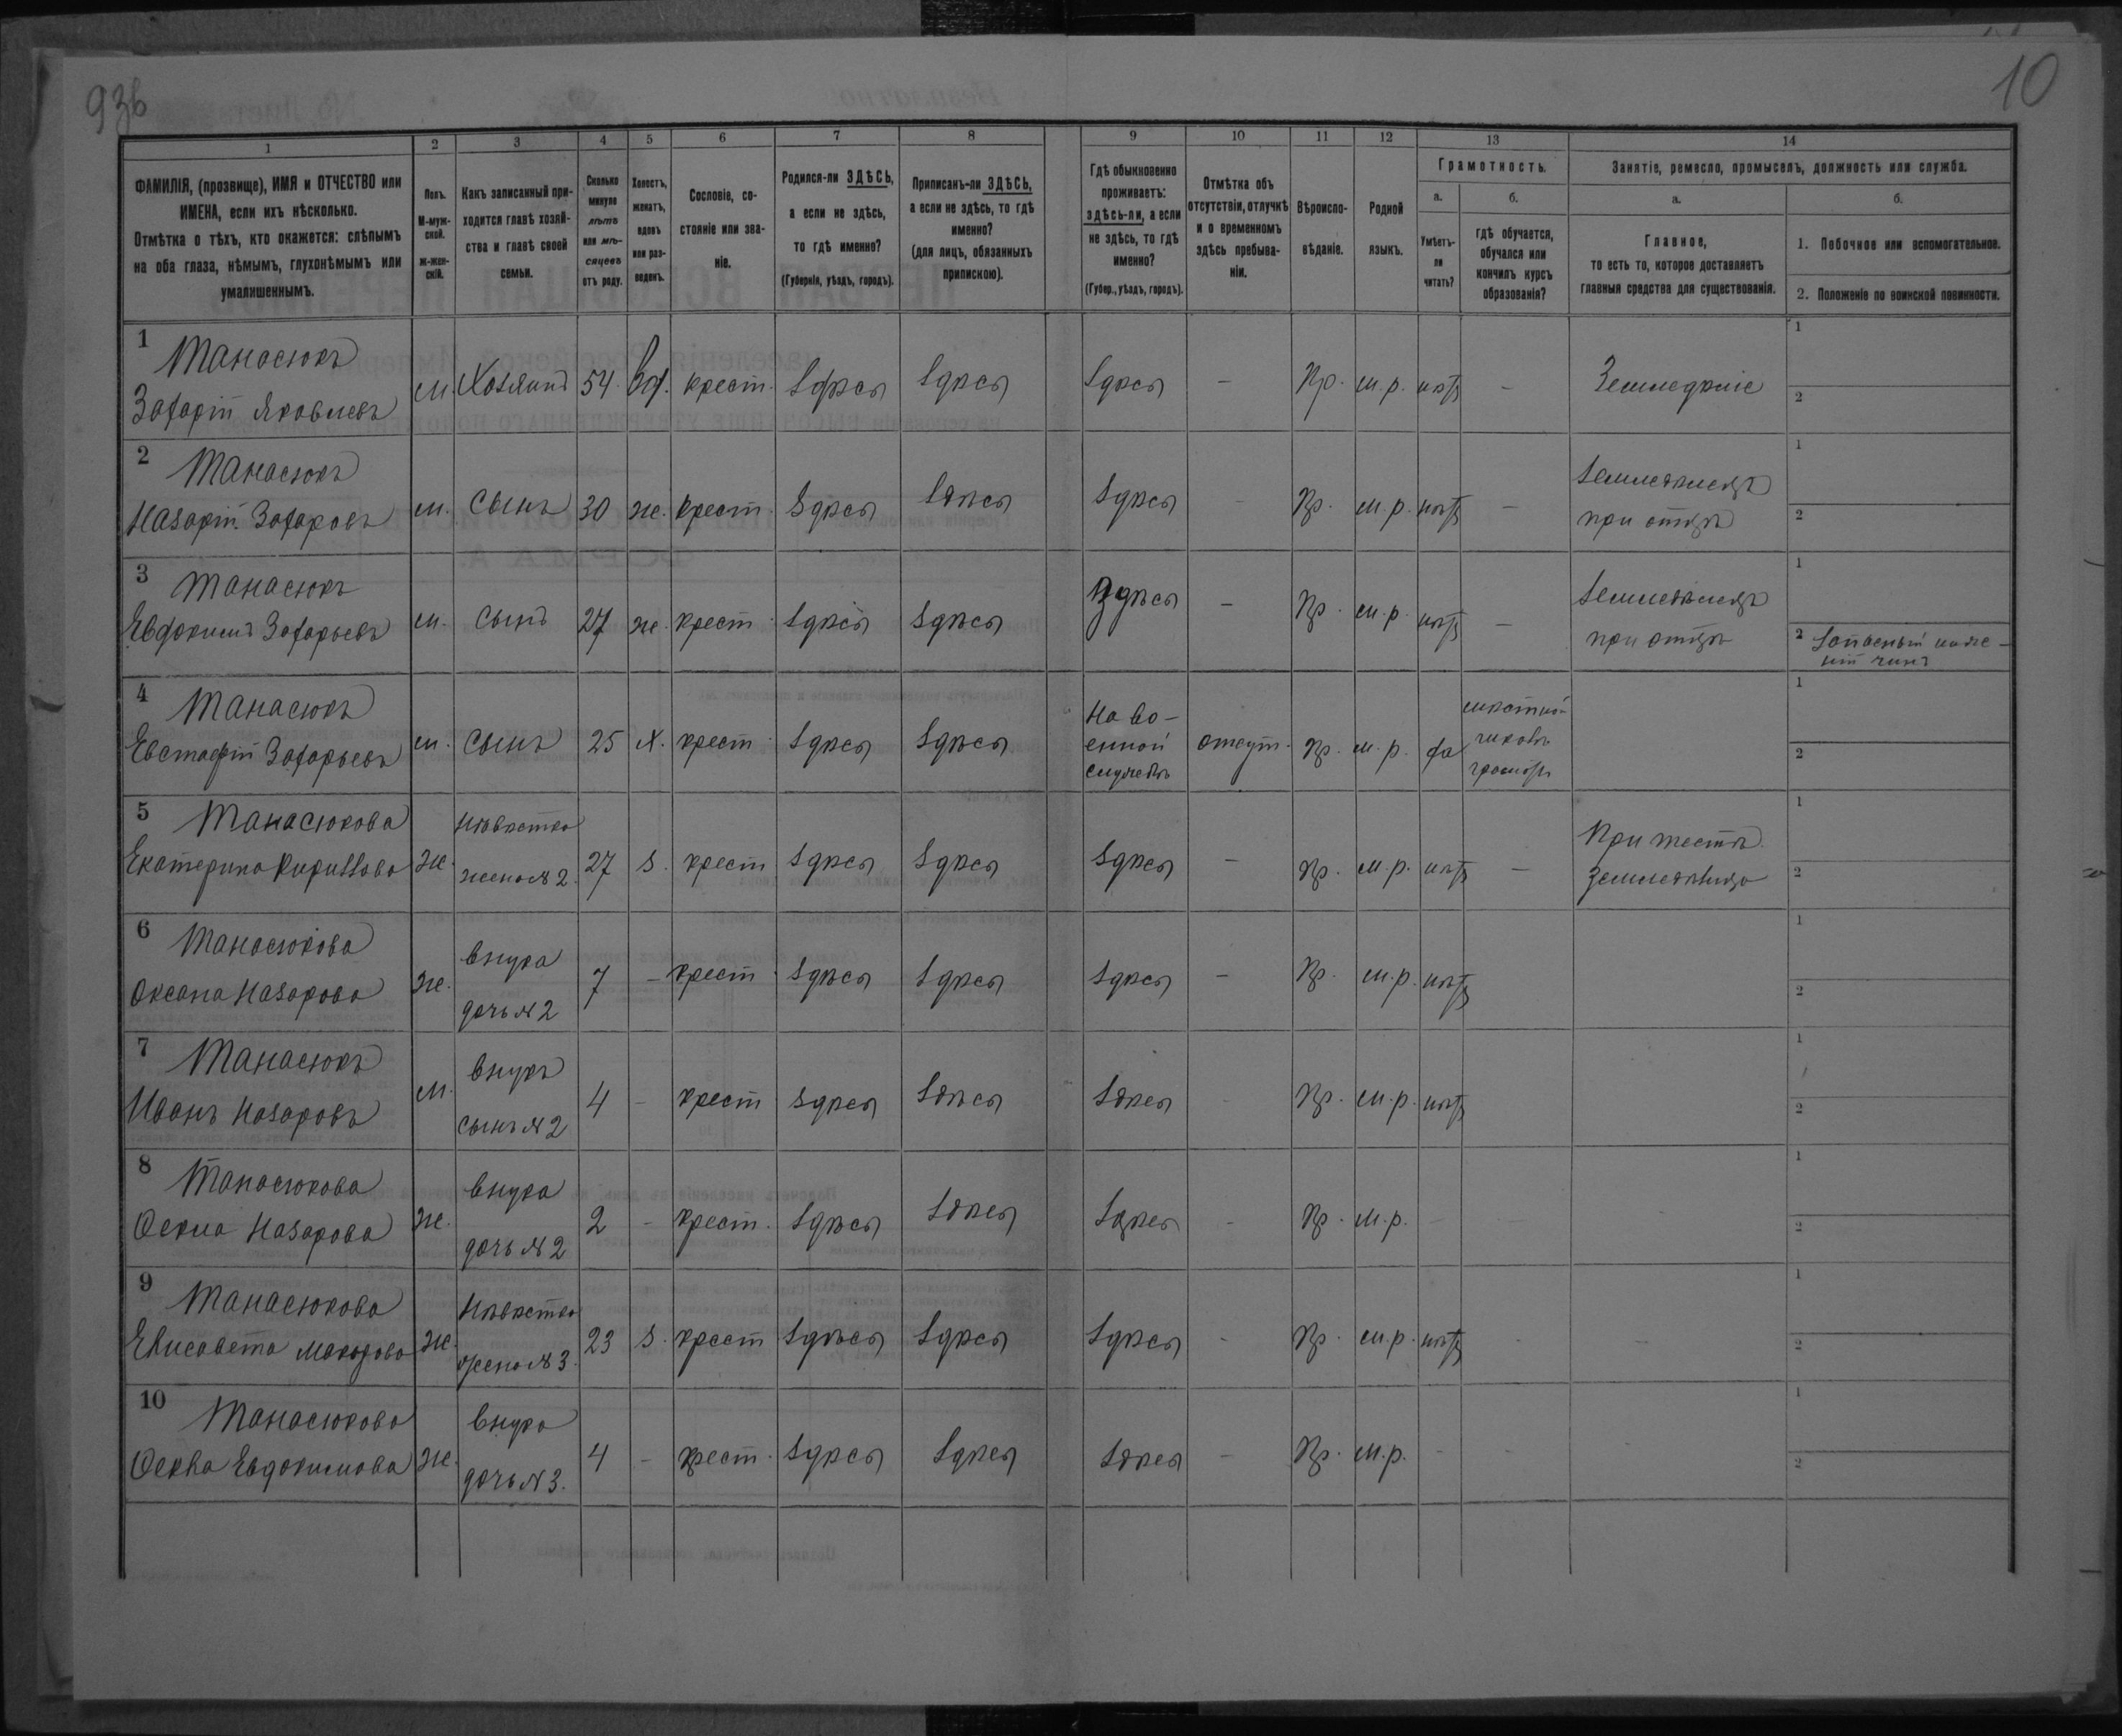 93б
10
1 2 3 4 5 6 7 8 9 10 11 12 13 14
ФАМИЛІЯ, (прозвище), ИМЯ и ОТЧЕСТВО или
ИМЕНА, если ихъ нѣсколько.
Отмѣтка о тѣхъ, кто окажется: слѣпымъ
на оба глаза, нѣмымъ, глухонѣмымъ или
умалишеннымъ.
Полъ.
М-муж-
ской.
Ж-жен-
скій.
Какъ записанный при-
ходится главѣ хозяй-
ства и главѣ своей
семьи.
Сколько
минуло
лѣтъ
или мѣ-
сяцевъ
отъ роду.
Холостъ,
женатъ,
вдовъ
или раз-
веденъ.
Сословіе, со-
стояніе или зва-
ніе.
Родился-ли ЗДѢСЬ,
а если не здѣсь,
то гдѣ именно?
(Губернія, уѣздъ, городъ).
Приписанъ-ли ЗДѢСЬ,
а если не здѣсь, то гдѣ
именно?
(для лицъ, обязанныхъ
припискою).
Гдѣ обыкновенно
проживаетъ:
здѣсь-ли, а если
не здѣсь, то гдѣ
именно?
(Губер., уѣздъ, городъ).
Отмѣтка объ
отсутствіи, отлучкѣ
и о временномъ
здѣсь пребыва-
ніи.
Вѣроиспо-
вѣданіе.
Родной
языкъ.
Грамотность.
а.
Умѣетъ-
ли
читать?
б.
гдѣ обучается,
обучался или
кончилъ курсъ
образованія?
Занятіе, ремесло, промыселъ, должность или служба.
а.
Главное,
то есть то, которое доставляетъ
главныя средства для существованія.
б.
1. Побочное или вспомогательное.
2. Положеніе по воинской повинности.
1 Танасюкъ
Захарій Яковлевъ м. Хозяинъ 54. вд. крест. здѣсь здѣсь здѣсь – Пр. м.р. нѣтъ – Земледѣліе 1 2
2 Танасюкъ
Назарій Захаровъ м. сынъ 30 ж. крест. здѣсь здѣсь здѣсь – Пр. м.р. нѣтъ – земледѣлецъ
при отцѣ 1 2
3 Танасюкъ
Евдокимъ Захарьевъ м. сынъ 27 ж. крест. здѣсь здѣсь здѣсь – Пр. м.р. нѣтъ – земледѣлецъ
при отцѣ 1 2 Запасный ниж-
ній чинъ
4 Танасюкъ
Евстафій Захарьевъ м. сынъ 25 х. крест. здѣсь здѣсь На во-
енной
службѣ отсут. Пр. м.р. да 1 2
5 Танасюкова
Екатерина Кирилова ж. Невѣстка
жена №2. 27 з. крест здѣсь здѣсь здѣсь – Пр. м.р. нѣтъ – При тестѣ
земледѣлица 1 2
6 Танасюкова
Оксана Назарова ж. внука
дочь №2 7 – крест. здѣсь здѣсь здѣсь – Пр. м.р. нѣтъ 1 2
7 Танасюкъ
Иванъ Назаровъ м. внукъ
сынъ №2 4 – крест здѣсь здѣсь здѣсь – Пр. м.р. нѣтъ 1 2
8 Танасюкова
Назарова ж. внука
дочь №2 2 – крест. здѣсь здѣсь здѣсь – Пр. м.р. – – – 1 2
9 Танасюкова
Елисавета Макарова ж. Невѣстка
жена №3. 23 з. крест здѣсь здѣсь здѣсь – Пр. м.р. нѣтъ – – 1 2
10 Танасюкова
Евдокимова ж. внука
дочь №3. 4 – крест. здѣсь здѣсь здѣсь – Пр. м.р. – – – 1 2